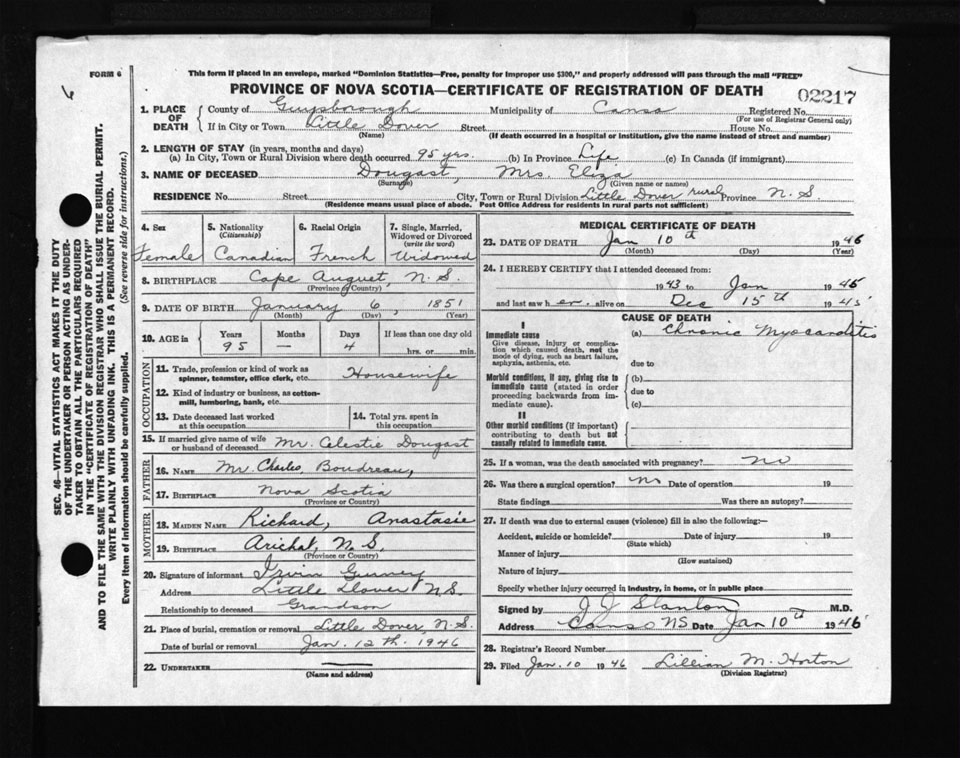 FORM 6
6
This form if placed in an envelope, marked "Dominion Statistics—Free, penalty for improper use $300," and properly addressed will pass through the mail "FREE"
PROVINCE OF NOVA SCOTIA—CERTIFICATE OF REGISTRATION OF DEATH
02217
1. PLACE OF DEATH County of Guysborough Municipality of Canso Registered No.
(For use of Registrar General only)
If in City or Town Little Dover Street House No.
(Name) (If death occurred in a hospital or institution, give the name instead of street and number)
2. LENGTH OF STAY (in years, months and days)
(a) In City, Town or Rural Division where death occurred 95 yrs. (b) In Province Life (c) In Canada (if immigrant)
3. NAME OF DECEASED Dougast, Mrs. Eliza
(Surname) (Given name or names)
RESIDENCE No. Street City, Town or Rural Division Little Dover rural Province N.S.
(Residence means usual place of abode. Post Office Address for residents in rural parts not sufficient)
4. Sex 5. Nationality (Citizenship) 6. Racial Origin 7. Single, Married, Widowed or Divorced (write the word)
Female Canadian French Widowed
8. BIRTHPLACE Cape Auguet, N.S.
(Province or Country)
9. DATE OF BIRTH January 6, 1851
(Month) (Day) (Year)
10. AGE in Years Months Days If less than one day old
95 — 4 hrs. or min.
OCCUPATION
11. Trade, profession or kind of work as spinner, teamster, office clerk, etc. Housewife
12. Kind of industry or business, as cotton-mill, lumbering, bank, etc.
13. Date deceased last worked at this occupation
14. Total yrs. spent in this occupation
15. If married give name of wife or husband of deceased Mr. Celestie Dougast
FATHER
16. NAME Mr. Charles Boudreau,
17. BIRTHPLACE Nova Scotia
(Province or Country)
MOTHER
18. MAIDEN NAME Richard, Anastasie
19. BIRTHPLACE Arichat, N.S.
(Province or Country)
20. Signature of informant Irvin Gurney
Address Little Dover N.S.
Relationship to deceased Grandson
21. Place of burial, cremation or removal Little Dover, N.S.
Date of burial or removal Jan. 12th. 1946
22. UNDERTAKER
(Name and address)
MEDICAL CERTIFICATE OF DEATH
23. DATE OF DEATH Jan 10th 1946
(Month) (Day) (Year)
24. I HEREBY CERTIFY that I attended deceased from:
1943 to Jan 1946
and last saw h er. alive on Dec 15th 1945
CAUSE OF DEATH
I
Immediate cause (a) Chronic Myocarditis
Give disease, injury or complication which caused death, not the mode of dying, such as heart failure, asphyxia, asthenia, etc.
due to
Morbid conditions, if any, giving rise to immediate cause (stated in order proceeding backwards from immediate cause)
(b)
due to
(c)
II
Other morbid conditions (if important) contributing to death but not causally related to immediate cause.
25. If a woman, was the death associated with pregnancy? no
26. Was there a surgical operation? no Date of operation 19
State findings Was there an autopsy?
27. If death was due to external causes (violence) fill in also the following:—
Accident, suicide or homicide? Date of injury 19
(State which)
Manner of injury
(How sustained)
Nature of injury
Specify whether injury occurred in industry, in home, or in public place
Signed by J J Stanton M.D.
Address Canso NS Date Jan 10th 1946
28. Registrar's Record Number
29. Filed Jan. 10 1946 Lillian M. Horton
(Division Registrar)
SEC. 46—VITAL STATISTICS ACT MAKES IT THE DUTY
OF THE UNDERTAKER OR PERSON ACTING AS UNDER-
TAKER TO OBTAIN ALL THE PARTICULARS REQUIRED
IN THE "CERTIFICATE OF REGISTRATION OF DEATH"
AND TO FILE THE SAME WITH THE DIVISION REGISTRAR WHO SHALL ISSUE THE BURIAL PERMIT.
WRITE PLAINLY WITH UNFADING INK. THIS IS A PERMANENT RECORD.
Every item of information should be carefully supplied. (See reverse side for instructions.)